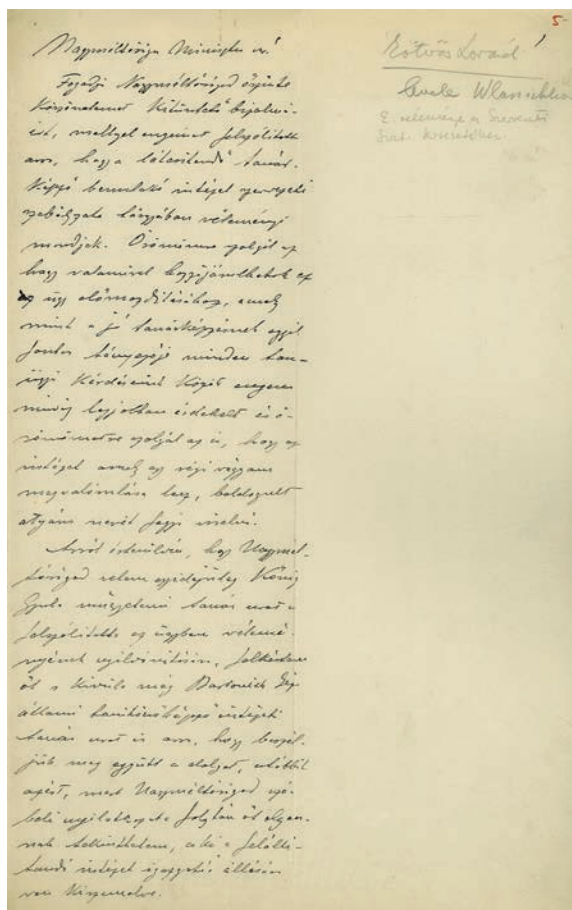 5.
Nagyméltóságu Miniszter úr!
Fogadja Nagyméltóságod őszinte
köszönetemet kitüntető bizalmá-
ért, mellyel engemet felszólított
arra, hogy a létesítendő tanár-
képző bennlakó intézet szervezeti
szabályzata tárgyában véleményt
mondjak. Örömömre szolgál az
hogy valamivel hozzájárulhatok
az ügy előmozdításához, amely
mint a jó tanárképzésnek egyik
fontos tényezője minden tan-
ügyi kérdéseink közt engem
mindig legjobban érdekelt és ö-
römömre szolgál az is, hogy az
intézet amely egy régi vágyam
megvalósulása lesz, boldogult
atyám nevét fogja viselni.
Arról értesülvén, hogy Nagymél-
tóságod velem egyidejűleg König
Gyula műegyetemi tanár urat is
felszólította ez ügyben vélemé-
nyének nyilvánítására, felkértem
őt s kívüle még Bartoniek Géza
állami tanítónőképző intézeti
tanár urat is arra, hogy beszél-
jük meg együtt a dolgot, utóbbit
azért, mert Nagyméltóságod szó-
beli nyilatkozata folytán őt olyan-
nak tekinthetem, aki a felállí-
tandó intézet igazgatói állására
van kiszemelve.
Eötvös Loránd
Wlassichhoz
E. véleménye a szervezeti